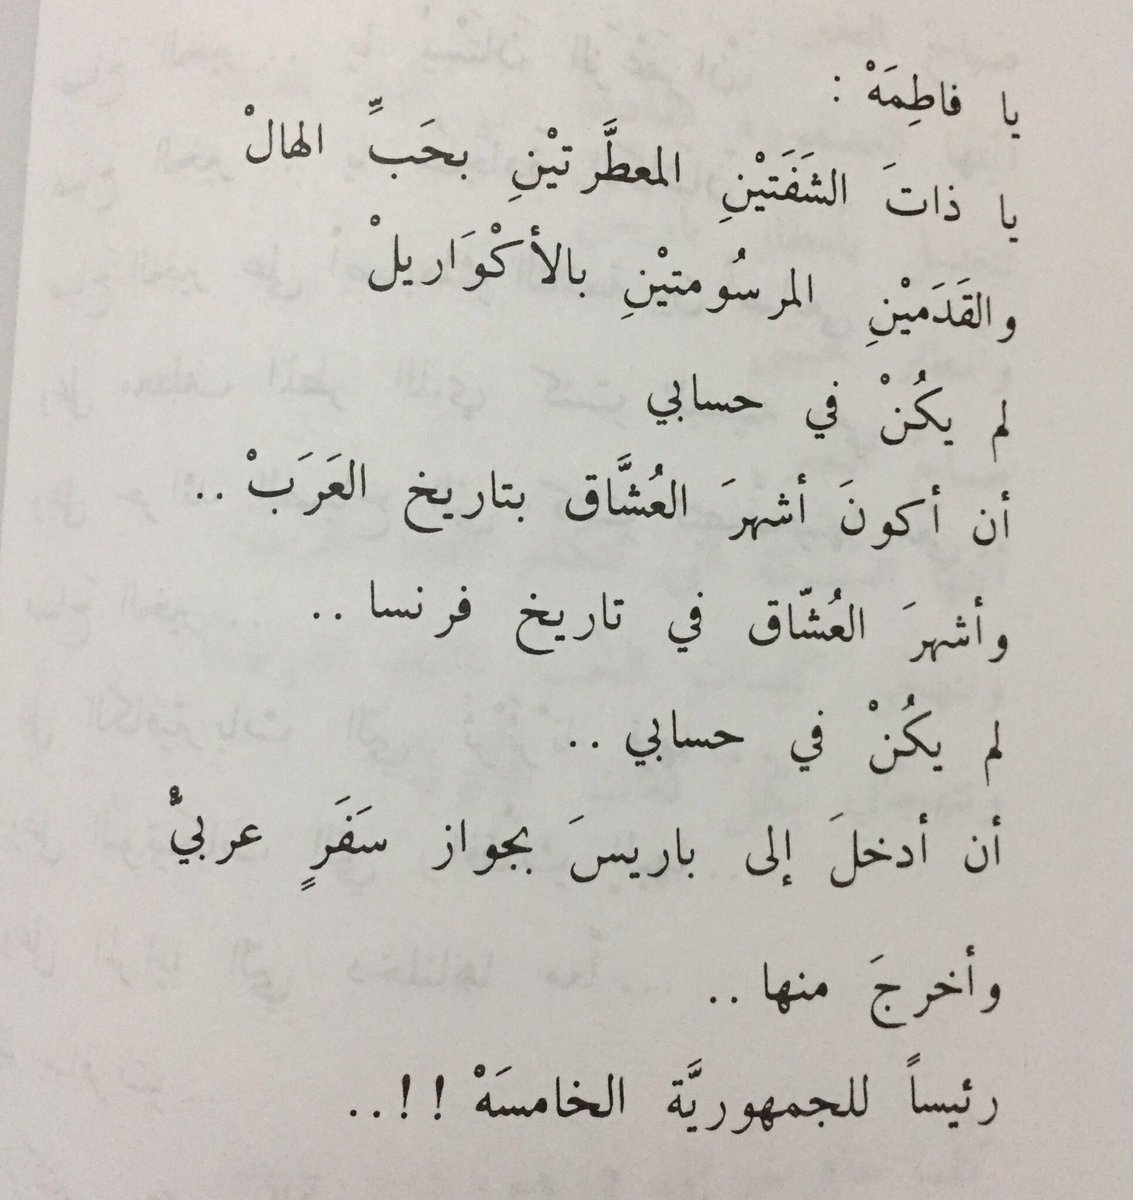 يا فاطِمَهْ :
يا ذاتَ الشَفَتيْنِ المعطَّرتيْنِ بحَبِّ الهالْ
والقَدَميْنِ المرسُومتيْنِ بالأكْوَاريلْ
لم يكُنْ في حسابي
أن أكونَ أشهرَ العُشَّاق بتاريخ العَرَبْ ..
وأشهرَ العُشّاق في تاريخ فرنسا ..
لم يكُنْ في حسابي ..
أن أدخلَ إلى باريسَ بجواز سَفَرٍ عربيٌّ
وأخرجَ منها ..
رئيساً للجمهوريَّة الخامسَهْ !! ..